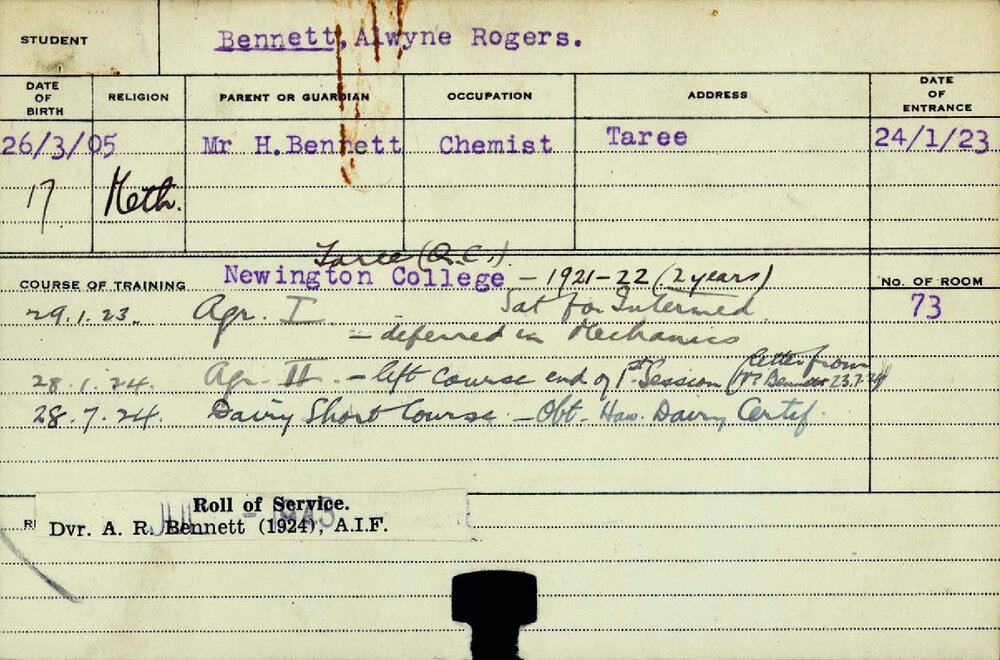 STUDENT Bennett, Alwyne Rogers.
DATE OF BIRTH RELIGION PARENT OR GUARDIAN OCCUPATION ADDRESS DATE OF ENTRANCE
26/3/05 Mr H. Bennett Chemist Taree 24/1/23
17 Meth.
Taree (R.C.).
COURSE OF TRAINING Newington College – 1921–22 (2 years) No. OF ROOM
29.1.23. Agr. I Sat for Intermed 73
– deferred in Mechanics
28.1.24. Agr. II. – left course end of 1st Session (letter from Mr Bennett 23.7.24)
28.7.24. Dairy Short Course – Obt. Haw. Dairy Certif.
Roll of Service.
Dvr. A. R. Bennett (1924), A.I.F.